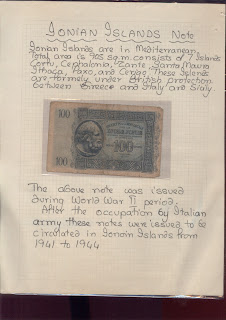 IONIAN ISLANDS Note
Ionian Islands are in Mediterranean
Total area is 965 sq.m. consists of 7 Islands
Corfu, Cephalonia, Zante, Santa Maura
Ithaca, Paxo, and Cerigo. These Islands
are formely under British protection
between Greece and Italy and Sicily
100
100
100
The above note was issued
during World War II period.
After the occupation by Italian
army these notes were issued to be
circulated in Ionain Islands from
1941 to 1944